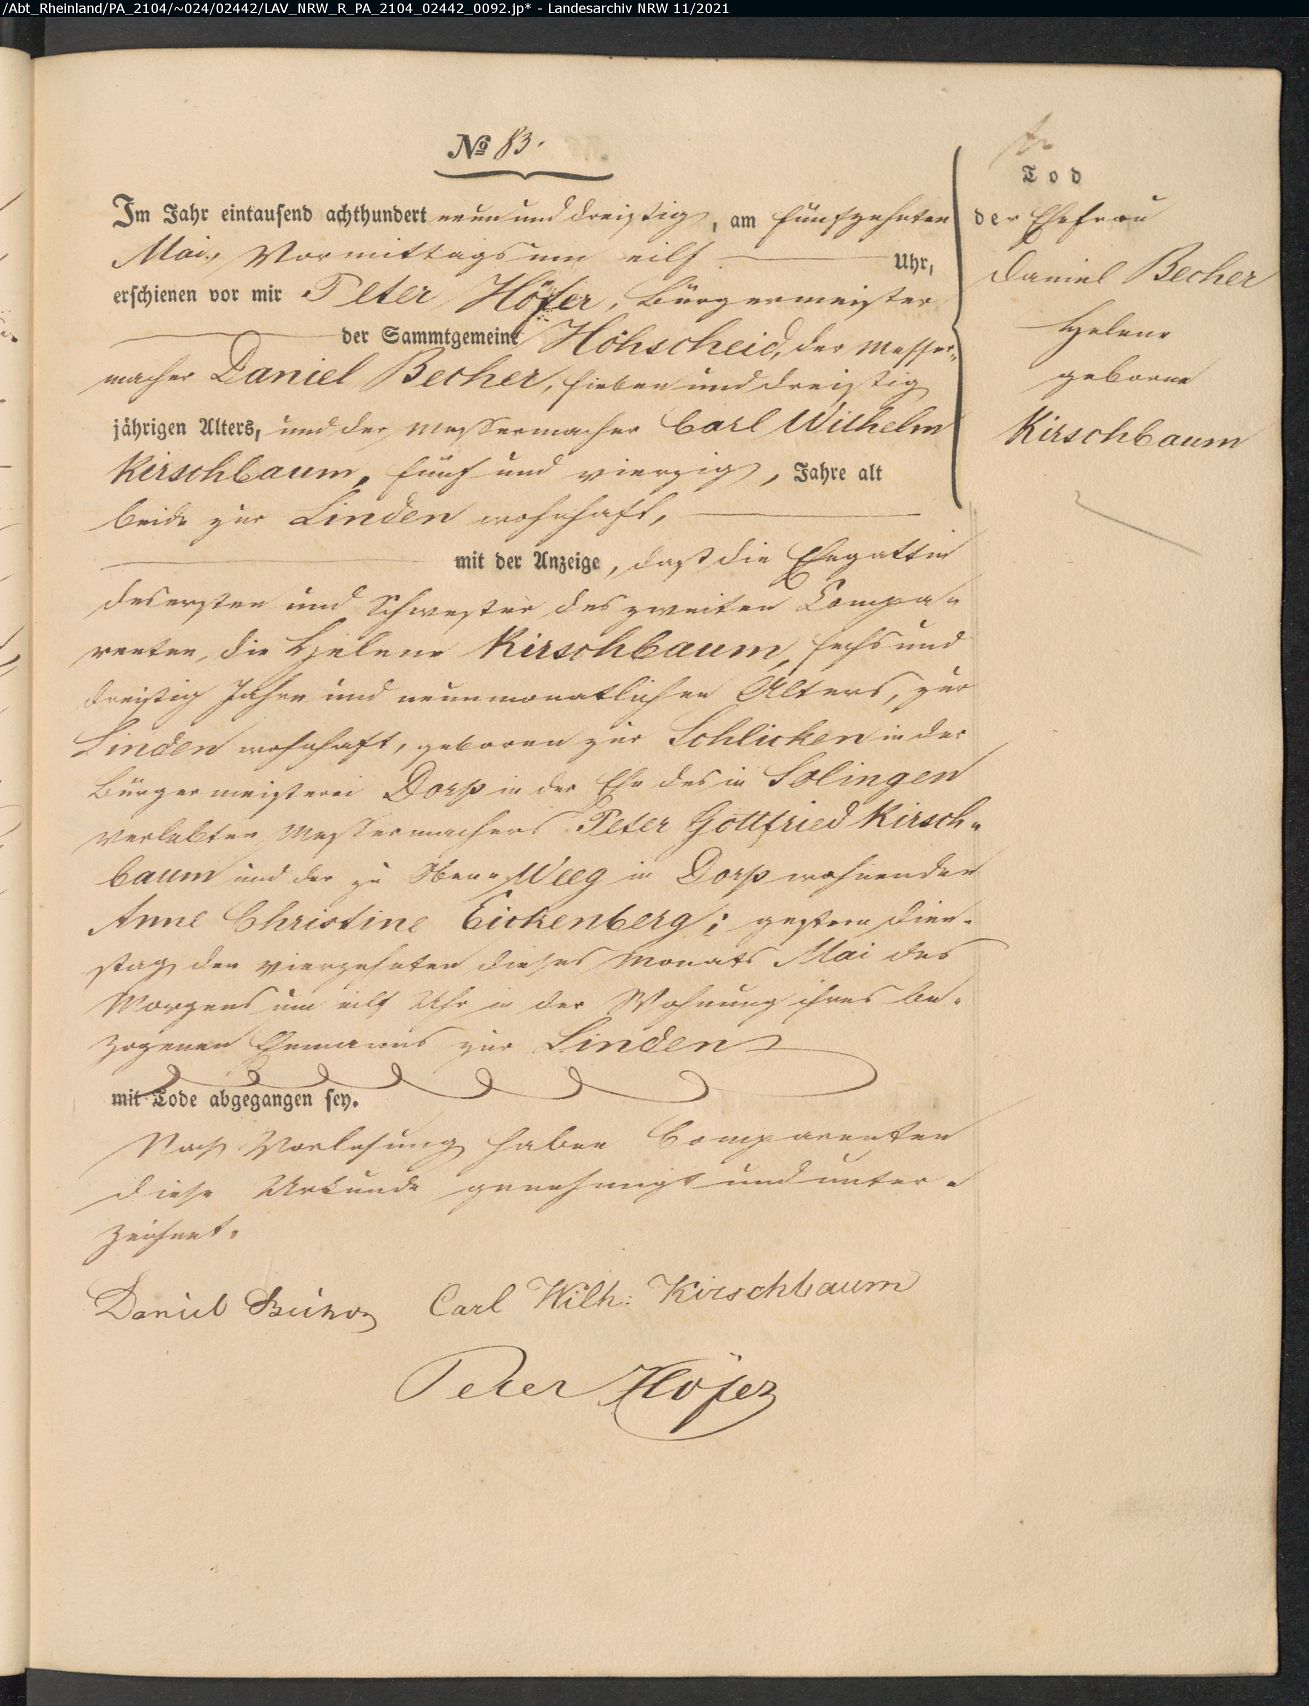 /Abt_Rheinland/PA_2104/~024/02442/LAV_NRW_R_PA_2104_02442_0092.jp* - Landesarchiv NRW 11/2021
№ 83.
Im Jahr eintausend achthundert neun und dreißig, am fünfzehnten
Mai, Vormittags um eilf Uhr,
erschienen vor mir Peter Höfer, Bürgermeister
der Sammtgemeine Höhscheid, der Messer-
macher Daniel Becher, sieben und dreißig
jährigen Alters, und der Messermacher Carl Wilhelm
Kirschbaum, fünf und vierzig, Jahre alt
beide zur Linden wohnhaft,
mit der Anzeige, daß die Ehegattin
des ersten und Schwester des zweiten Compa-
renten, die Helene Kirschbaum, sechs und
dreißig Jahre und neunmonatlichen Alters, zur
Linden wohnhaft, geboren zur Schlicken in der
Bürgermeisterei Dorp in der Ehe des in Solingen
verlebten Messermachers Peter Gottfried Kirsch-
baum und der zu Obene Weeg in Dorp wohnenden
Anne Christine Eickenberg; gestern Dien-
stag den vierzehnten dieses Monats Mai des
Morgens um eilf Uhr in der Wohnung ihres be-
zogenen Ehemanns zur Linden
mit Tode abgegangen sey.
Nach Vorlesung haben Comparenten
diese Urkunde genehmigt und unter-
zeichnet.
Daniel Becher Carl Wilh: Kirschbaum
Peter Höfer
Tod
der Ehefrau
Daniel Becher
Helene
geborne
Kirschbaum